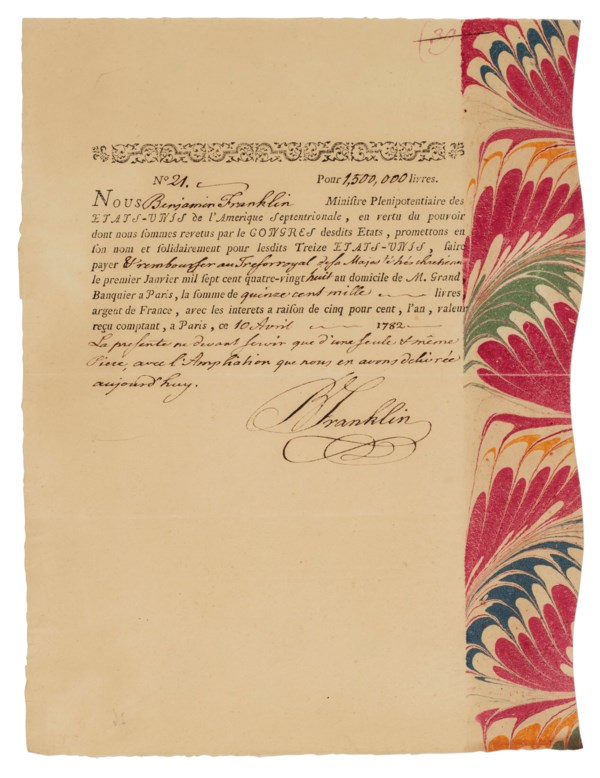 39
Nº 21. Pour 1,500,000 livres.
NOUS Benjamin Franklin Ministre Plenipotentiaire des
ETATS-UNIS de l'Amerique Septentrionale, en vertu du pouvoir
dont nous sommes revetus par le CONGRES desdits Etats, promettons en
son nom et solidairement pour lesdits Treize ETATS-UNIS, faire
payer & rembourser au Tresor royal de sa Majesté très chretienne
le premier Janvier mil sept cent quatre-vingt huit au domicile de M. Grand
Banquier a Paris, la somme de quinze cent mille livres
argent de France, avec les interets a raison de cinq pour cent, l'an, valeur
reçu comptant, a Paris, ce 10 Avril 1782.
La presente ne devant servir que d'une seule & même
Piece, avec l'Ampliation que nous en avons delivrée
aujourd'huy.
B Franklin